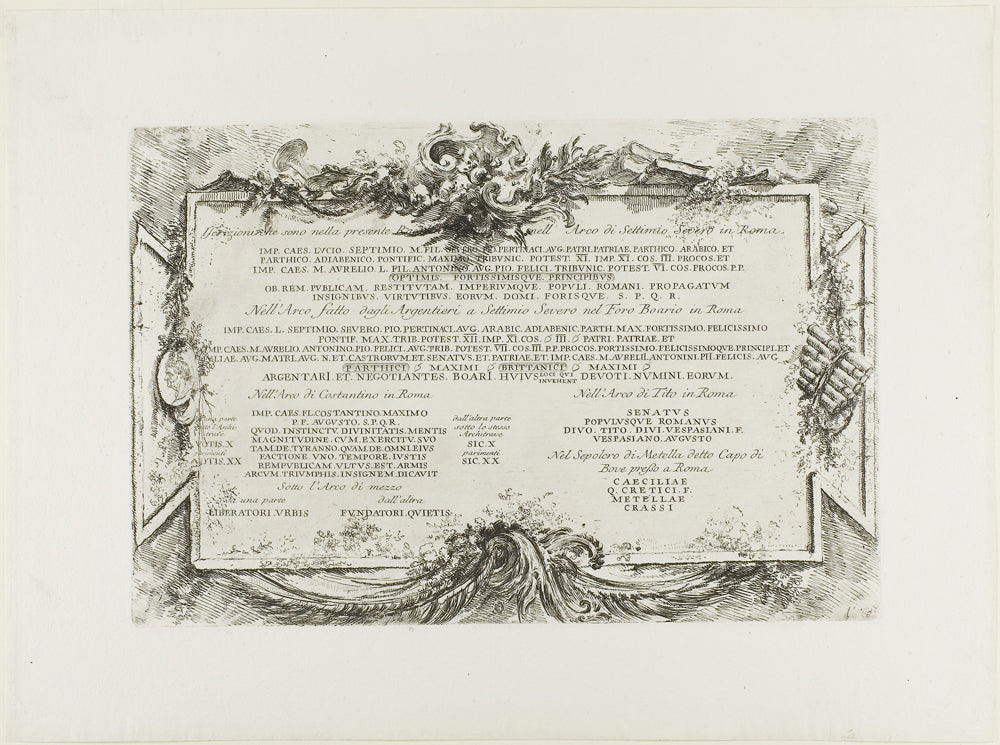 Iscrizioni che sono nella presente nell' Arco di Settimio Severo in Roma.
IMP. CAES. LVCIO. SEPTIMIO. M. FIL. SEVERO. PIO. PERTINACI. AVG. PATRI. PATRIAE. PARTHICO. ARABICO. ET
PARTHICO. ADIABENICO. PONTIFIC. MAXIMO. TRIBVNIC. POTEST. XI. IMP. XI. COS. III. PROCOS. ET
IMP. CAES. M. AVRELIO. L. FIL. ANTONINO. AVG. PIO. FELICI. TRIBVNIC. POTEST. VI. COS. PROCOS. P. P.
OPTIMIS. FORTISSIMISQVE. PRINCIPIBVS
OB. REM. PVBLICAM. RESTITVTAM. IMPERIVMQVE. POPVLI. ROMANI. PROPAGATVM
INSIGNIBVS. VIRTVTIBVS. EORVM. DOMI. FORISQVE. S. P. Q. R.
Nell'Arco fatto dagli Argentieri a Settimio Severo nel Foro Boario in Roma
IMP. CAES. L. SEPTIMIO. SEVERO. PIO. PERTINACI. AVG. ARABIC. ADIABENIC. PARTH. MAX. FORTISSIMO. FELICISSIMO
PONTIF. MAX. TRIB. POTEST. XII. IMP. XI. COS. III. PATRI. PATRIAE. ET
IMP. CAES. M. AVRELIO. ANTONINO. PIO. FELICI. AVG. TRIB. POTEST. VII. COS. III. P. P. PROCOS. FORTISSIMO. FELICISSIMOQVE. PRINCIPI. ET
IVLIAE. AVG. MATRI. AVG. N. ET. CASTRORVM. ET. SENATVS. ET. PATRIAE. ET. IMP. CAES. M. AVRELII. ANTONINI. PII. FELICIS. AVG.
PARTHICI MAXIMI BRITTANICI MAXIMI
ARGENTARI. ET. NEGOTIANTES. BOARI. HVIVS LOCI QVI INVEHENT DEVOTI. NVMINI. EORVM.
Nell'Arco di Costantino in Roma
IMP. CAES. FL. COSTANTINO. MAXIMO
P. F. AVGVSTO. S. P. Q. R.
QVOD. INSTINCTV. DIVINITATIS. MENTIS
MAGNITVDINE. CVM. EXERCITV. SVO
TAM. DE. TYRANNO. QVAM. DE. OMNI. EIVS
FACTIONE. VNO. TEMPORE. IVSTIS
REMPVBLICAM. VLTVS. EST. ARMIS
ARCVM. TRIVMPHIS. INSIGNEM. DICAVIT
Da una parte
sotto l'Archi
trave
VOTIS. X
parimenti
VOTIS. XX
dall'altra parte
sotto lo stesso
Architrave
SIC. X
parimenti
SIC. XX
Sotto l'Arco di mezzo
da una parte
LIBERATORI. VRBIS
dall'altra
FVNDATORI. QVIETIS
Nell'Arco di Tito in Roma
SENATVS
POPVLVSQVE ROMANVS
DIVO. TITO. DIVI. VESPASIANI. F.
VESPASIANO. AVGVSTO
Nel Sepolcro di Metella detto Capo di
Bove presso a Roma
CAECILIAE
Q. CRETICI. F.
METELLAE
CRASSI